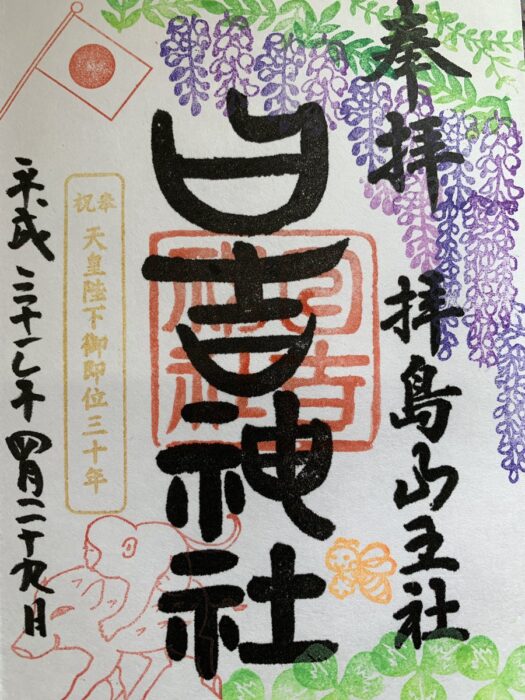 奉拝 拝島山王社
日吉神社
日吉神社
奉祝
天皇陛下御即位三十年
平成三十一年四月二十九日